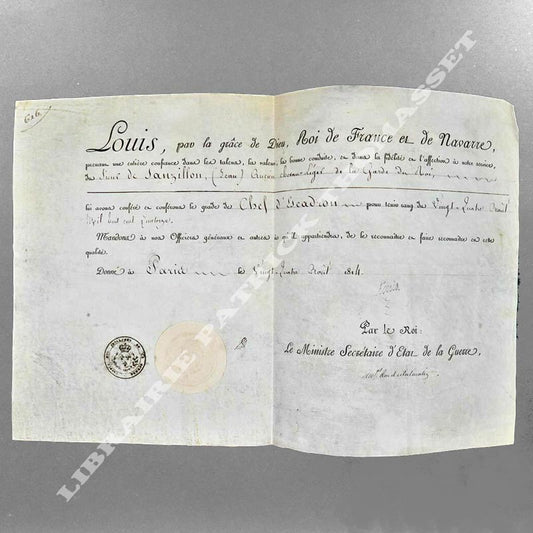 Louis, par la grâce de Dieu, Roi de France et de Navarre,
prenant une entière confiance dans les talens, la valeur, la bonne conduite, et dans la fidélité et l'affection à notre service,
du Sieur de Sanzillon, (Jean) Ancien chevau-léger de la Garde du Roi,
lui avons conféré et conférons le grade de Chef d'Escadron pour tenir rang du Vingt-Quatre Août
Mil huit cent quatorze.
Mandons à nos Officiers généraux et autres à qui il appartiendra, de le reconnaître et faire reconnaître en cette
qualité.
Donné à Paris le Vingt-Quatre Août 1814.
Louis
Par le Roi:
Le Ministre Secrétaire d'État de la Guerre,
LIBRAIRIE PATRICK THOMASSET